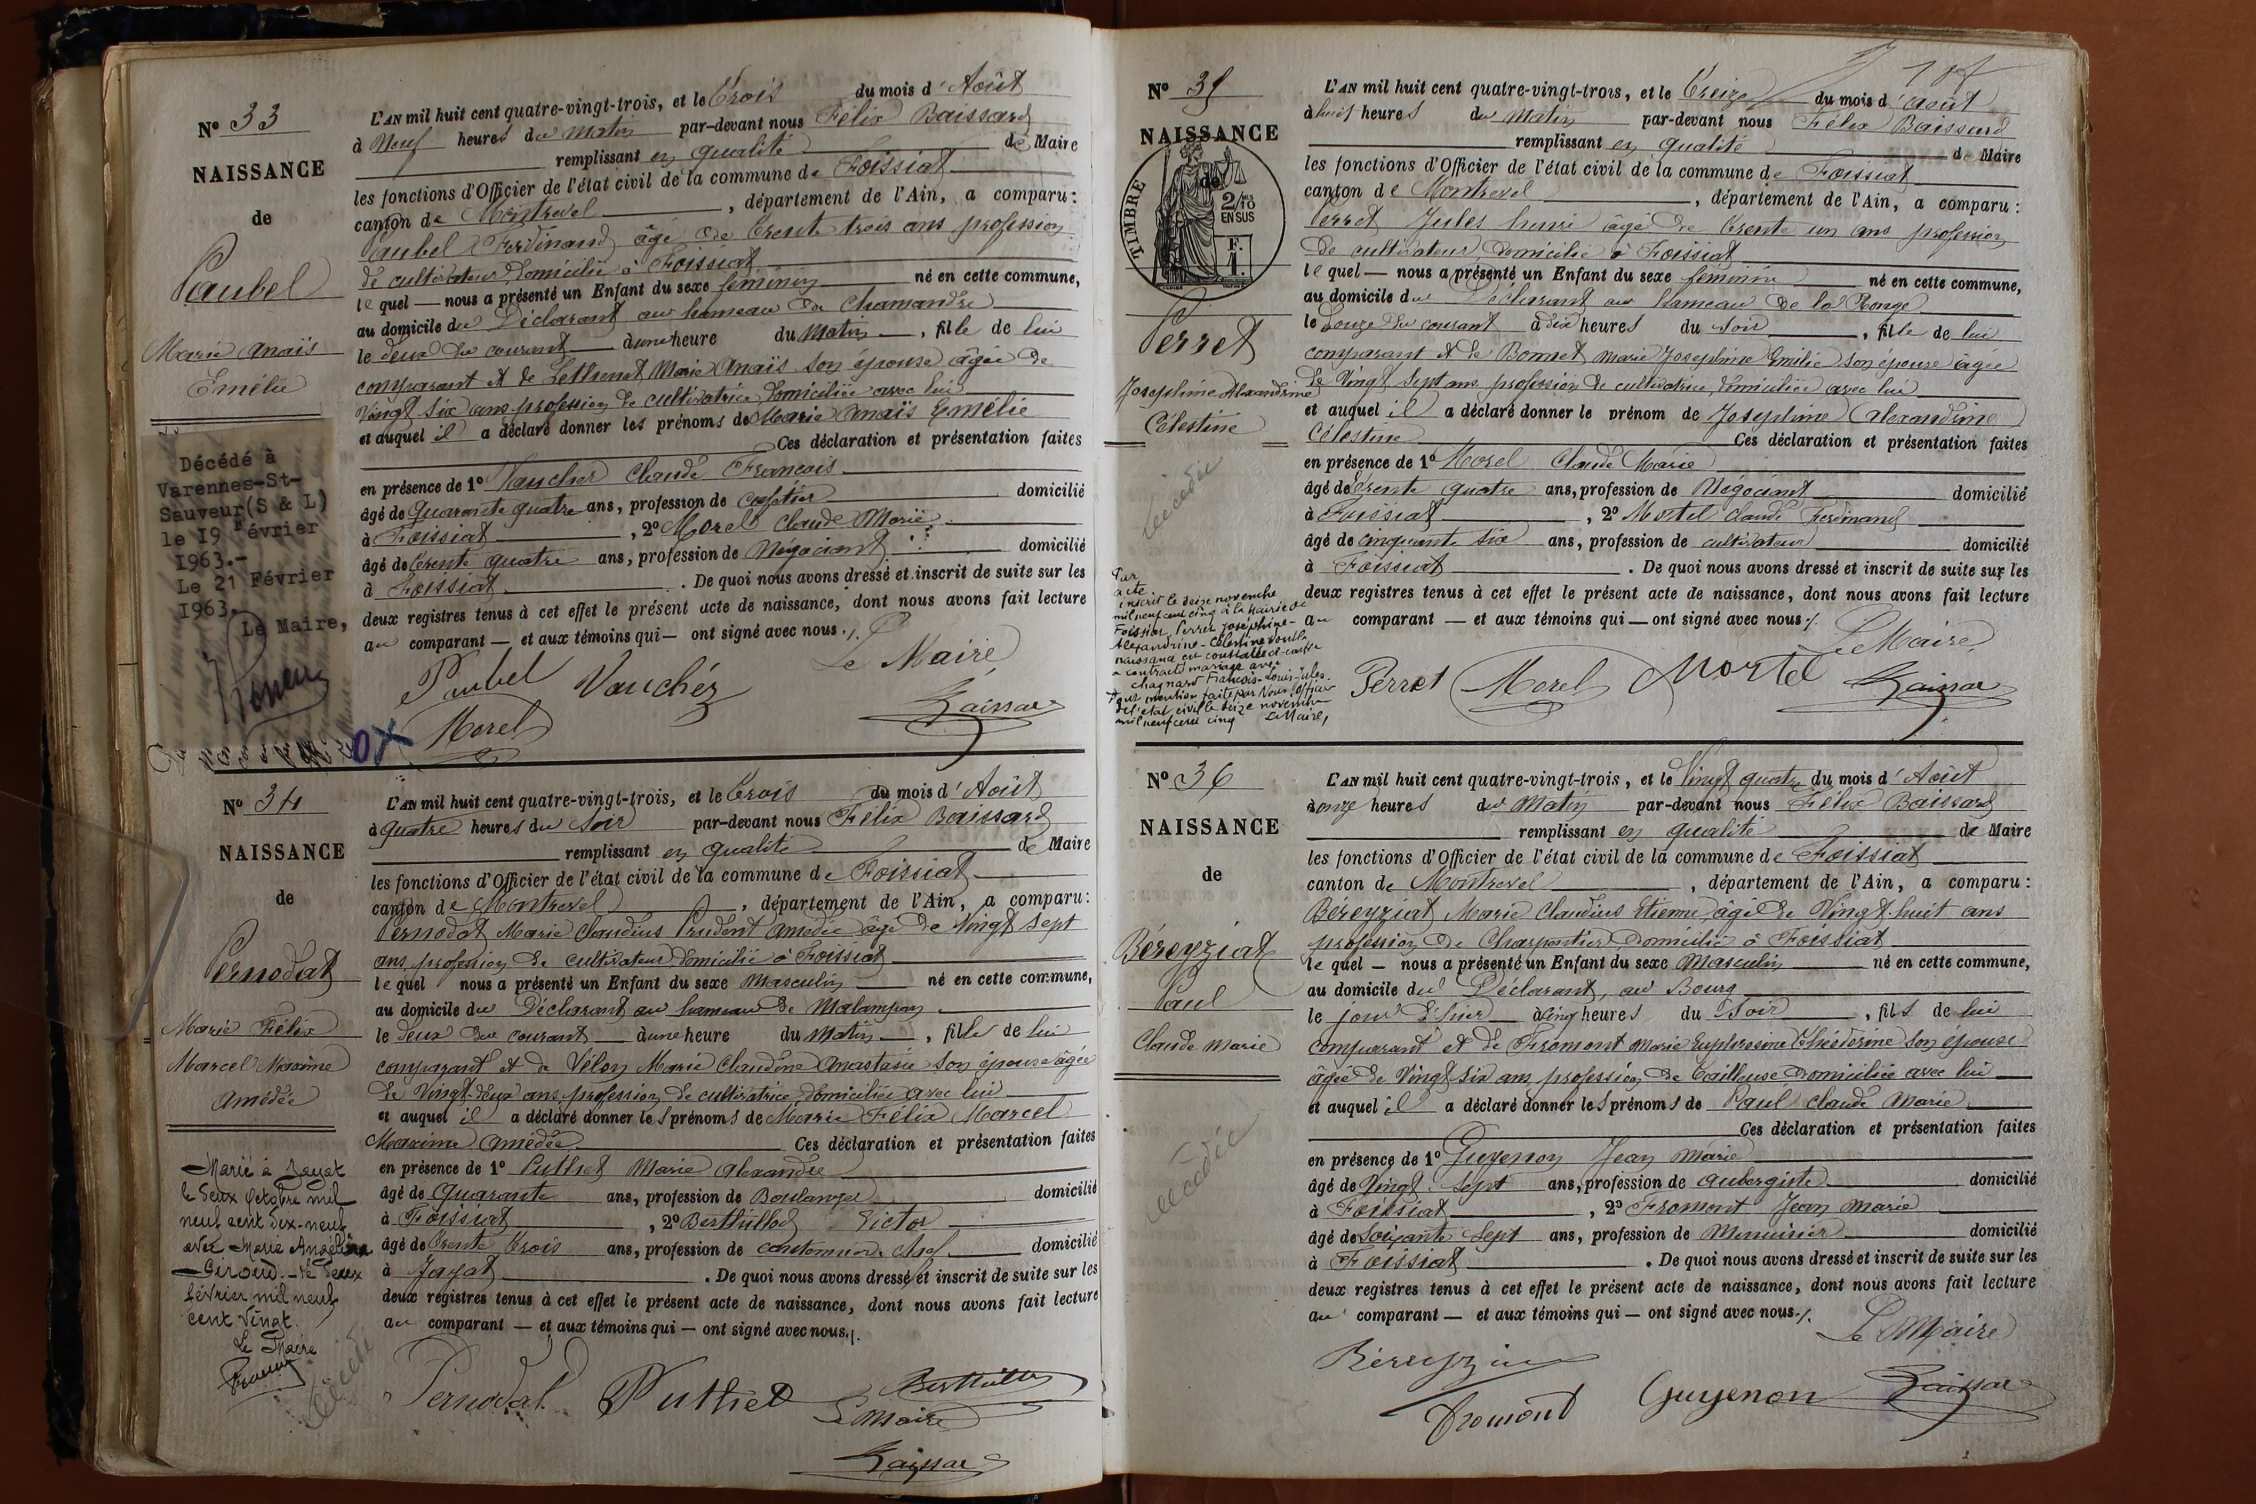 N° 33
NAISSANCE
de
Paubel
Marie Anaïs
Emélie
Décédé à
Varennes-St-
Sauveur (S & L)
le 19 Février
1963.-
Le 21 Février
1963.
Le Maire,
L'AN mil huit cent quatre-vingt-trois, et le Trois du mois d'Août
à Neuf heures du matin par-devant nous Félix Baissard
remplissant en qualité de Maire
les fonctions d'Officier de l'état civil de la commune de Foissiat
canton de Montrevel, département de l'Ain, a comparu:
Paubel Ferdinand âgé de trente trois ans profession
de cultivateur domicilié à Foissiat
lequel — nous a présenté un Enfant du sexe féminin né en cette commune,
au domicile du Déclarant au hameau de Chamandre
le deux du courant à une heure du matin, fille de lui
comparant et de Marie Anaïs son épouse âgée de
Vingt six ans profession de cultivatrice domiciliée avec lui
et auquel il a déclaré donner les prénoms de Marie Anaïs Emélie
Ces déclaration et présentation faites
en présence de 1° Vaucher Claude François
âgé de Quarante quatre ans, profession de cafetier domicilié
à Foissiat, 2° Morel Claude Marie
âgé de trente quatre ans, profession de Négociant domicilié
à Foissiat. De quoi nous avons dressé et inscrit de suite sur les
deux registres tenus à cet effet le présent acte de naissance, dont nous avons fait lecture
au comparant — et aux témoins qui — ont signé avec nous./.
Le Maire
Paubel Vauchez
Morel Baissard
N° 34
NAISSANCE
de
Pernodat
Marie Félix
Marcel Maxime
Amédée
Marié à Jayat
le deux octobre mil
neuf cent dix-neuf
avec Marie Angélina
Giroud. - le deux
février mil neuf
cent vingt.
Le Maire
Décédé
L'AN mil huit cent quatre-vingt-trois, et le Trois du mois d'Août
à quatre heures du Soir par-devant nous Félix Baissard
remplissant en qualité de Maire
les fonctions d'Officier de l'état civil de la commune de Foissiat
canton de Montrevel, département de l'Ain, a comparu:
Pernodat Marie Claudius Prudent Amédée âgé de Vingt sept
ans profession de cultivateur domicilié à Foissiat
lequel nous a présenté un Enfant du sexe Masculin né en cette commune,
au domicile du Déclarant au hameau de
le deux du courant à une heure du Matin, fille de lui
comparant et de Velon Marie Claudine Anastasie son épouse âgée
de Vingt-deux ans profession de cultivatrice domiciliée avec lui
et auquel il a déclaré donner les prénoms de Marie Félix Marcel
Maxime Amédée Ces déclaration et présentation faites
en présence de 1° Puthet Marie Alexandre
âgé de Quarante ans, profession de Boulanger domicilié
à Foissiat, 2° Berthillod Victor
âgé de trente trois ans, profession de cantonnier chef domicilié
à Jayat. De quoi nous avons dressé et inscrit de suite sur les
deux registres tenus à cet effet le présent acte de naissance, dont nous avons fait lecture
au comparant — et aux témoins qui — ont signé avec nous./.
Pernodat Puthet
Le Maire
Baissard
N° 35
NAISSANCE
de
TIMBRE
2/10 EN SUS
F. 1.
Perret
Josephine Alexandrine
Célestine
Décédée
Par
acte
inscrit le seize novembre
mil neuf cent cinq à la Mairie de
Foissiat, Perret Joséphine-
Alexandrine-Célestine dont la
naissance est constatée ci-contre
a contracté mariage avec
Chagnard François-Louis-Jules.
Pour mention faite par Nous, Officier
de l'état civil le seize novembre
mil neuf cent cinq Le Maire,
L'AN mil huit cent quatre-vingt-trois, et le Treize du mois d'Août
à huit heures du Matin par-devant nous Félix Baissard
remplissant en qualité de Maire
les fonctions d'Officier de l'état civil de la commune de Foissiat
canton de Montrevel, département de l'Ain, a comparu:
Perret Jules henri âgé de trente un ans profession
de cultivateur domicilié à Foissiat
lequel — nous a présenté un Enfant du sexe féminin né en cette commune,
au domicile du Déclarant au hameau de la Ronge
le Douze du courant à dix heures du Soir, fille de lui
comparant et de Bonnet Marie Josephine Emélie son épouse âgée
de Vingt sept ans profession de cultivatrice domiciliée avec lui
et auquel il a déclaré donner le prénom de Josephine Alexandrine
Célestine Ces déclaration et présentation faites
en présence de 1° Morel Claude Marie
âgé de trente quatre ans, profession de Négociant domicilié
à Foissiat, 2° Mortel Claude Ferdinand
âgé de cinquante six ans, profession de cultivateur domicilié
à Foissiat. De quoi nous avons dressé et inscrit de suite sur les
deux registres tenus à cet effet le présent acte de naissance, dont nous avons fait lecture
au comparant — et aux témoins qui — ont signé avec nous./.
Le Maire,
Perret Morel Mortel Baissard
N° 36
NAISSANCE
de
Béreyziat
Paul
Claude Marie
Décédé
L'AN mil huit cent quatre-vingt-trois, et le Vingt quatre du mois d'Août
à onze heures du Matin par-devant nous Félix Baissard
remplissant en qualité de Maire
les fonctions d'Officier de l'état civil de la commune de Foissiat
canton de Montrevel, département de l'Ain, a comparu:
Béreyziat Marie Claudius Etienne âgé de Vingt huit ans
profession de Charpentier domicilié à Foissiat
lequel — nous a présenté un Enfant du sexe Masculin né en cette commune,
au domicile du Déclarant, au Bourg
le jour d'hier à cinq heures du Soir, fils de lui
comparant et de Fromont Marie Euphrosine son épouse
âgée de Vingt six ans profession de Tailleuse domiciliée avec lui
et auquel il a déclaré donner les prénoms de Paul Claude Marie
Ces déclaration et présentation faites
en présence de 1° Guyenon Jean Marie
âgé de Vingt sept ans, profession de aubergiste domicilié
à Foissiat, 2° Fromont Jean Marie
âgé de Soixante sept ans, profession de Menuisier domicilié
à Foissiat. De quoi nous avons dressé et inscrit de suite sur les
deux registres tenus à cet effet le présent acte de naissance, dont nous avons fait lecture
au comparant — et aux témoins qui — ont signé avec nous./.
Le Maire
Fromont Guyenon Baissard